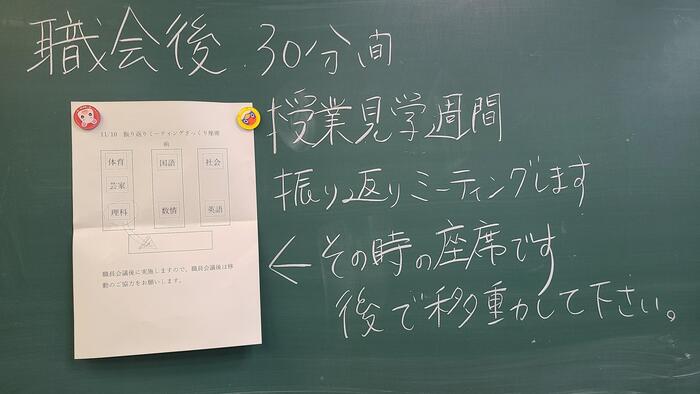 職会後 30分間
授業見学週間
振り返りミーティングします
←その時の座席です
後で移動して下さい。
11/10 振り返りミーティングざっくり座席
前
体育 国語 社会
芸家
理科 数情 英語
職員会議後に実施しますので、職員会議後は移
動のご協力をお願いします。